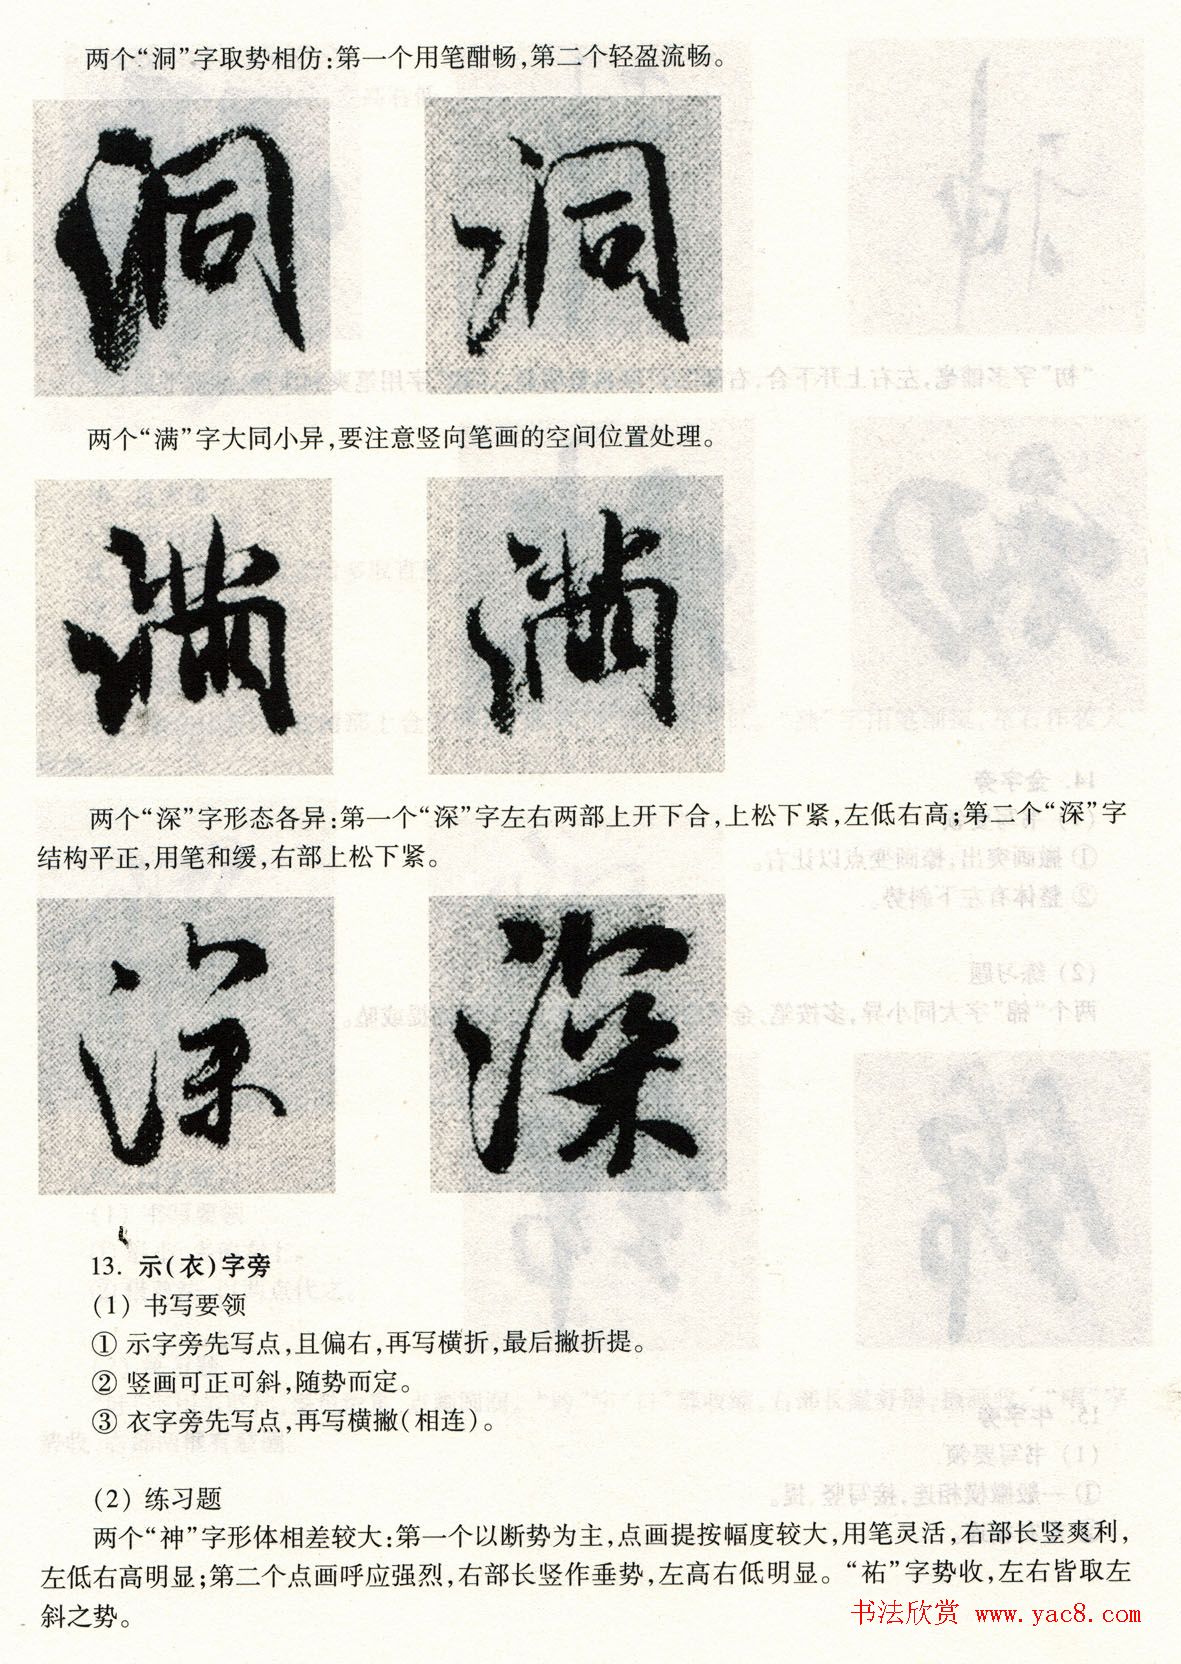 两个“洞”字取势相仿:第一个用笔酣畅,第二个轻盈流畅。
洞 洞
两个“满”字大同小异,要注意竖向笔画的空间位置处理。
满 满
两个“深”字形态各异:第一个“深”字左右两部上开下合,上松下紧,左低右高;第二个“深”字
结构平正,用笔和缓,右部上松下紧。
深 深
13. 示(衣)字旁
(1) 书写要领
① 示字旁先写点,且偏右,再写横折,最后撇折提。
② 竖画可正可斜,随势而定。
③ 衣字旁先写点,再写横撇(相连)。
(2) 练习题
两个“神”字形体相差较大:第一个以断势为主,点画提按幅度较大,用笔灵活,右部长竖爽利,
左低右高明显;第二个点画呼应强烈,右部长竖作垂势,左高右低明显。“祐”字势收,左右皆取左
斜之势。
书法欣赏 www.yac8.com